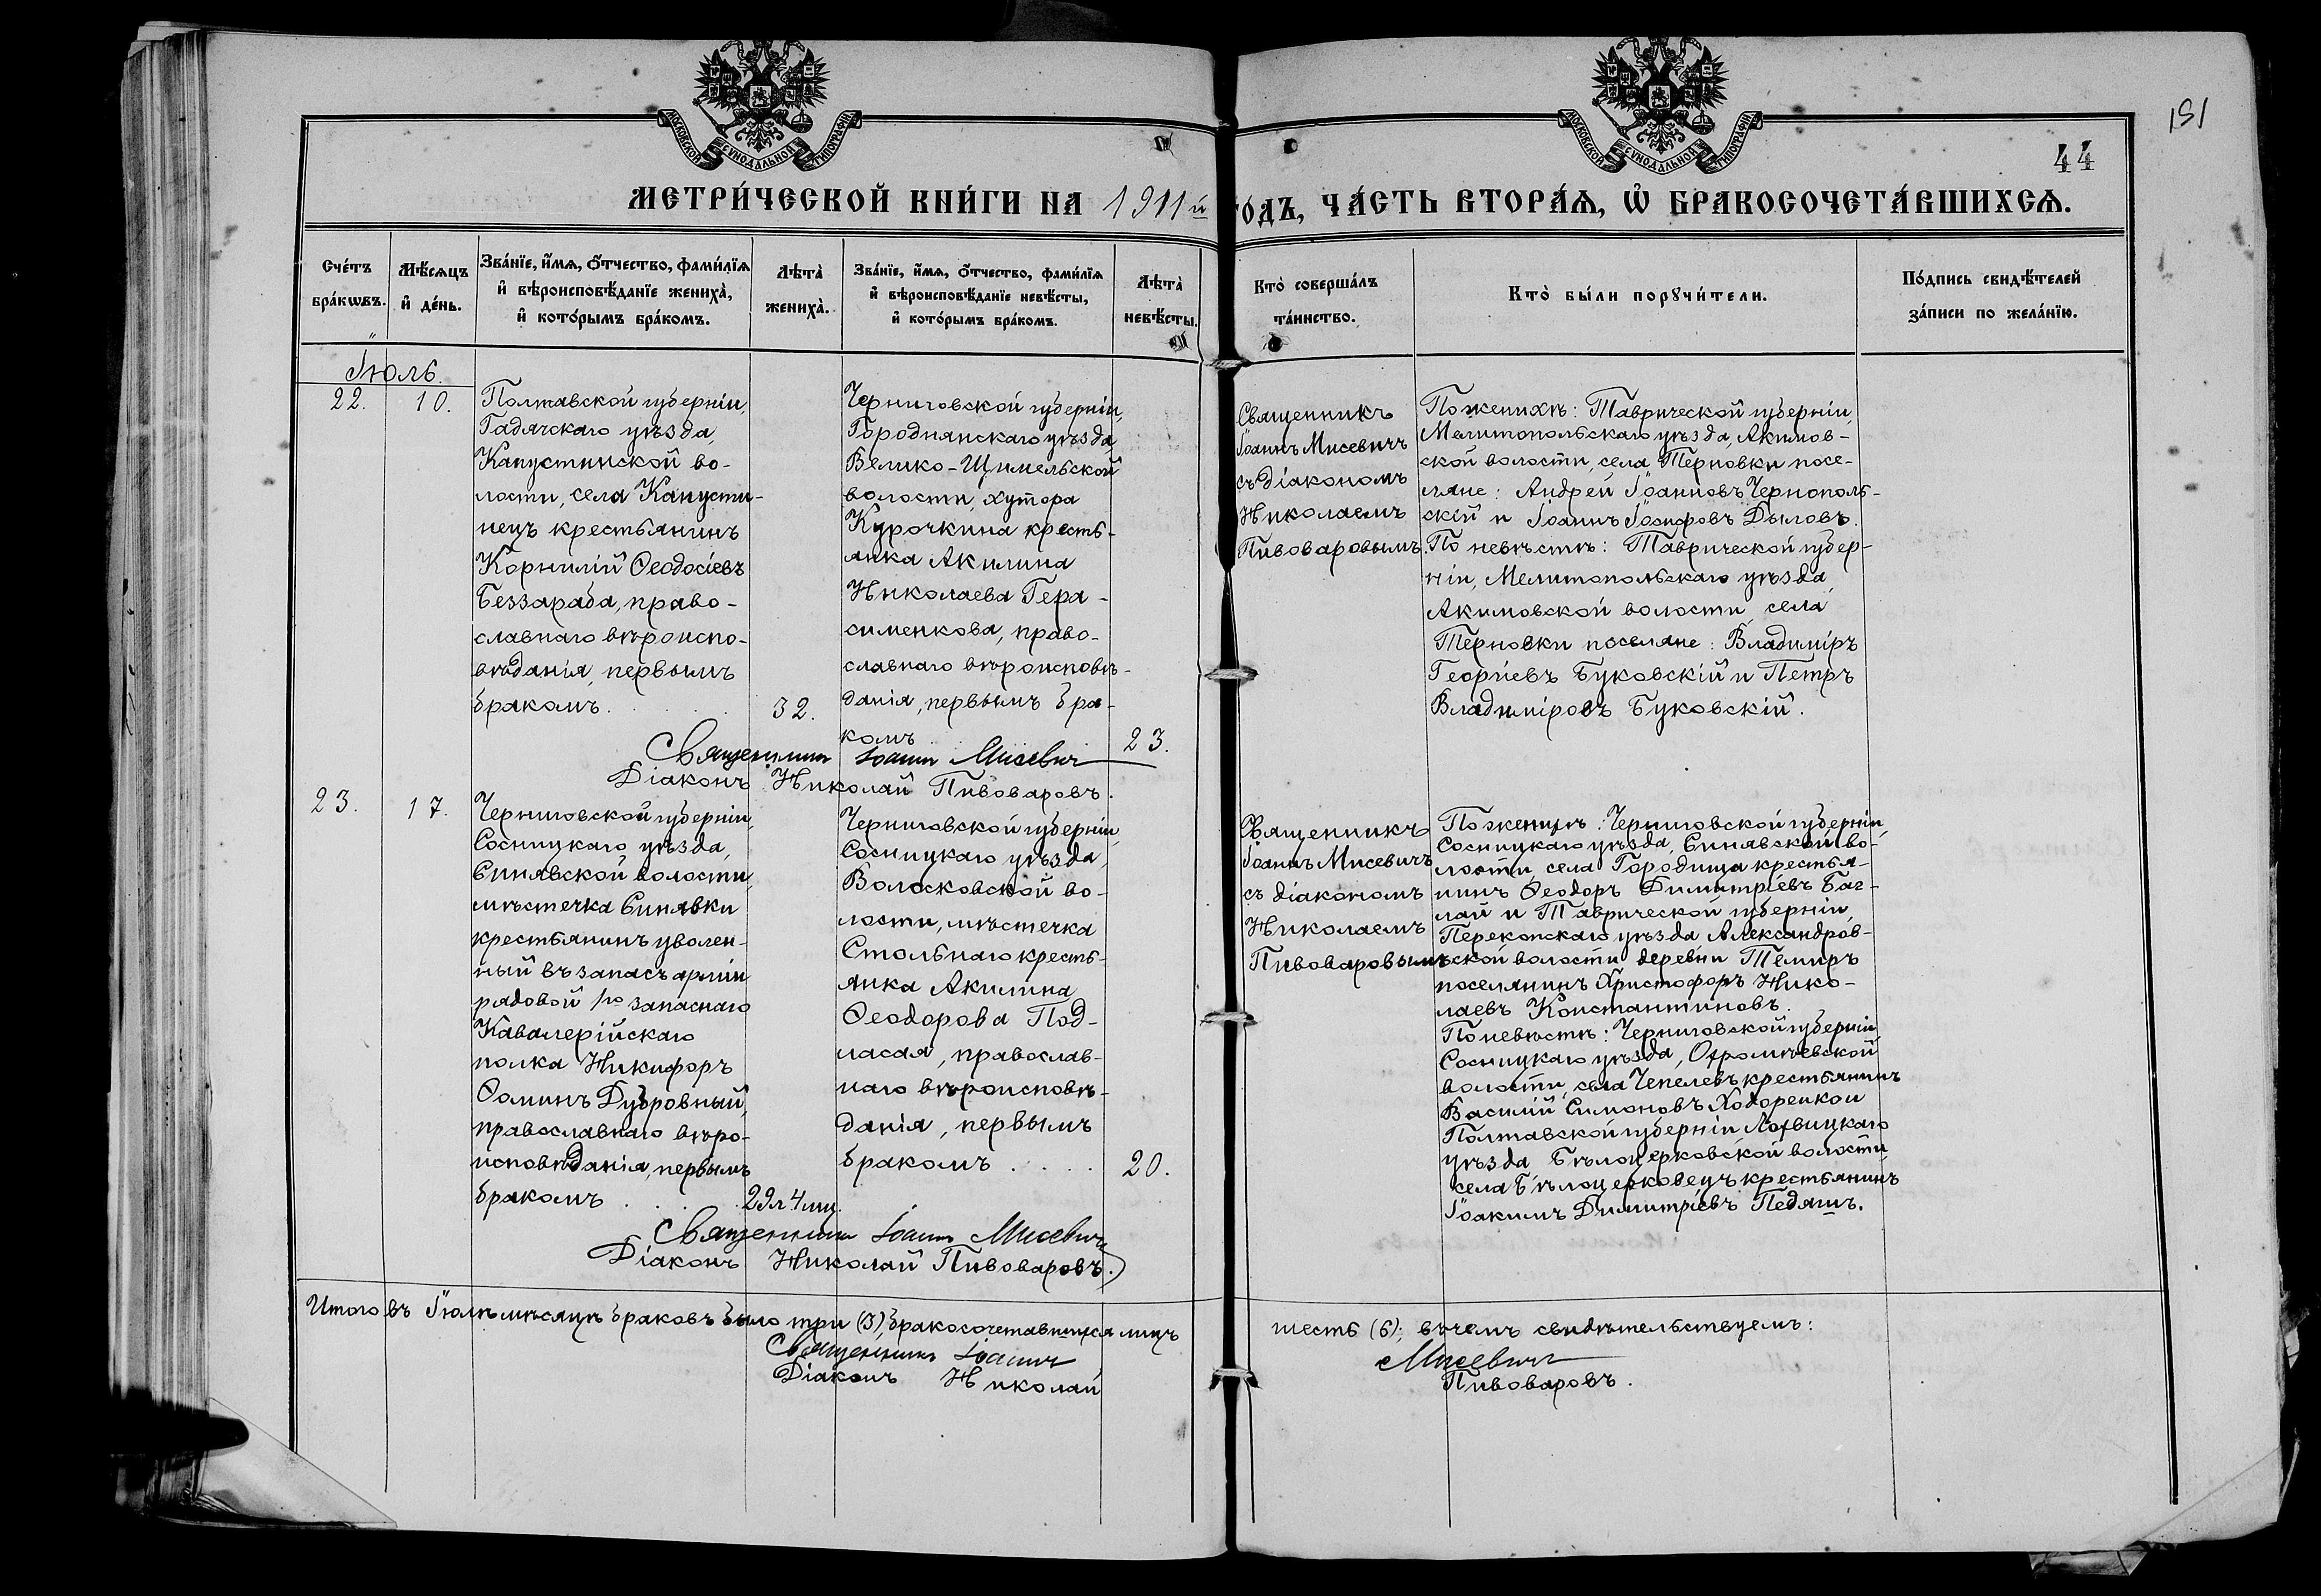 МОСКОВСКОЙ СѴНОДАЛЬНОЙ ТИПОГРАФІИ
МОСКОВСКОЙ СѴНОДАЛЬНОЙ ТИПОГРАФІИ
151
44
МЕТРИ́ЧЕСКОЙ КНИ́ГИ НА 1911й ГОДЪ, ЧА́СТЬ ВТОРА́Ѧ, Ѡ҆ БРАКОСОЧЕТА́ВШИХСѦ.
Сче́тъ
бра́кѡвъ.
Мѣ́сѧцъ
и҆ де́нь.
Зва́нїе, и҆́мѧ, ѻ҆́тчество, фами́лїѧ
и҆ вѣроисповѣ́данїе жениха̀,
и҆ кото́рымъ бра́комъ.
Лѣта̀
жениха̀.
Зва́нїе, и҆́мѧ, ѻ҆́тчество, фами́лїѧ
и҆ вѣроисповѣ́данїе невѣ́сты,
и҆ кото́рымъ бра́комъ.
Лѣта̀
невѣ́сты.
Кто̀ соверша́лъ
та́инство.
Кто̀ бы́ли порꙋчи́тели.
По́дпись свидѣ́телей
за́писи по жела́нїю.
Іюль.
22.
10.
Полтавской губерніи,
Гадячскаго уѣзда,
Капустинской во-
лости, села Капусти-
нецъ крестьянинъ
Корнилій Ѳеодосіевъ
Беззараба, право-
славнаго вѣроиспо-
вѣданія, первымъ
бракомъ . . . .
32.
Черниговской губерніи,
Городнянскаго уѣзда,
Велико-Щимельской
волости, хутора
Курочкина кресть-
янка Акилина
Николаева Гера-
сименкова, право-
славнаго вѣроисповѣ-
данія, первымъ бра-
комъ
23.
Священникъ
Іоаннъ Мисевичъ
съ діакономъ
Николаемъ
Пивоваровымъ.
По женихѣ: Таврической губерніи,
Мелитопольскаго уѣзда, Акимов-
ской волости, села Терновки посе-
ляне: Андрей Іоанновъ Чернополь-
скій и Іоаннъ Іосифовъ Дыловъ.
По невѣстѣ: Таврической губер-
ніи, Мелитопольскаго уѣзда,
Акимовской волости, села
Терновки поселяне: Владиміръ
Георгіевъ Буковскій и Петръ
Владиміровъ Буковскій.
Священникъ Іоаннъ Мисевичъ
Діаконъ Николай Пивоваровъ.
23.
17.
Черниговской губерніи,
Сосницкаго уѣзда,
Синявской волости,
мѣстечка Синявки
крестьянинъ уволен-
ный въ запасъ арміи
рядовой 1го запаснаго
Кавалерійскаго
полка Никифоръ
Ѳоминъ Дубровный,
православнаго вѣро-
исповѣданія, первымъ
бракомъ . . . .
29л 4мц.
Черниговской губерніи,
Сосницкаго уѣзда,
Волосковской во-
лости, мѣстечка
Стольнаго кресть-
янка Акилина
Ѳеодорова Под-
ласая, православ-
наго вѣроисповѣ-
данія, первымъ
бракомъ . . . .
20.
Священникъ
Іоаннъ Мисевичъ
съ діакономъ
Николаемъ
Пивоваровымъ
По женихѣ: Черниговской губерніи,
Сосницкаго уѣзда, Синявской во-
лости, села Городища крестья-
нинъ Ѳеодоръ Димитріевъ Баг-
лай и Таврической губерніи,
Перекопскаго уѣзда Александров-
ской волости деревни Темиръ
поселянинъ Христофоръ Нико-
лаевъ Константиновъ.
По невѣстѣ: Черниговской губерніи
Сосницкаго уѣзда, Охромѣевской
волости, села Чепелевъ крестьянинъ
Василій Симоновъ Ходоренко и
Полтавской губерніи Лохвицкаго
уѣзда Бѣлоцерковской волости,
села Бѣлоцерковецъ крестьянинъ
Іоакимъ Димитріевъ Педяшъ.
Священникъ Іоаннъ Мисевичъ
Діаконъ Николай Пивоваровъ.
Итого въ Іюлѣ мѣсяцѣ браковъ было три (3), бракосочетавшихся лицъ шесть (6); въ чемъ свидѣтельствуемъ:
Священникъ Іоаннъ Мисевичъ
Діаконъ Николай Пивоваровъ.